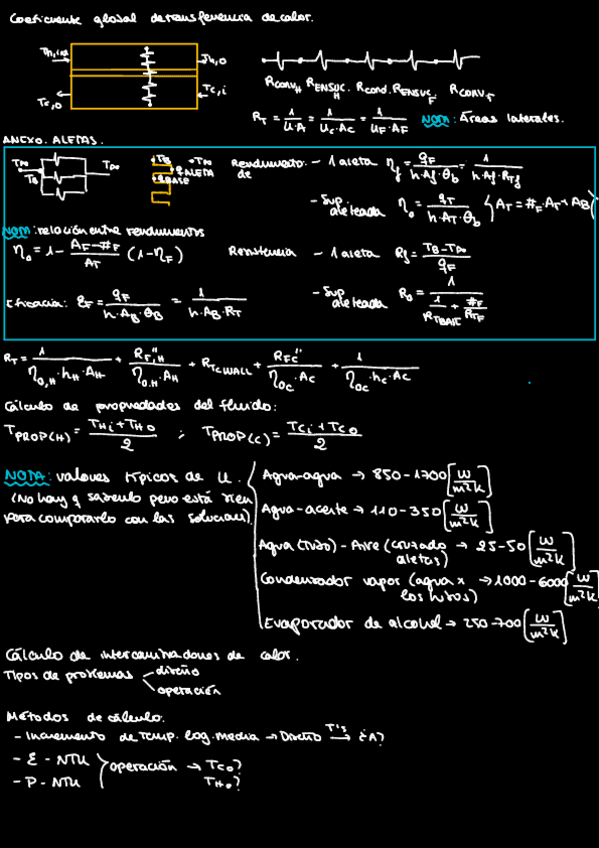 Coeficiente global de transferencia de calor.
Th,in Th,o
Tc,o Tc,i
Rconv_H Rensuc_H Rcond. Rensuc_F Rconv_F
R_T = 1/(U·A) = 1/(U_c·A_c) = 1/(U_F·A_F) NOTA: Áreas laterales.
ANEXO. ALETAS.
T∞ T_B T∞ T_B T∞ q ALETA q BASE
Rendimiento de - 1 aleta η_f = q_F/(h·A_f·θ_b) = 1/(h·A_f·R_Tf)
- Sup aleteada η_o = q_T/(h·A_T·θ_b) { A_T = #_F·A_F + A_B }
NOTA: relación entre rendimientos
η_o = 1 - (A_F·#_F)/A_T (1 - η_F)
Resistencia - 1 aleta R_f = (T_B - T∞)/q_F
- Sup aleteada R_o = 1/(1/R_TBASE + #_F/R_TF)
Eficacia: ε_F = q_F/(h·A_B·θ_B) = 1/(h·A_B·R_T)
R_T = 1/(η_o,H·h_H·A_H) + R_F,H''/(η_o,H·A_H) + R_TC WALL + R_FC''/(η_oc·A_c) + 1/(η_oc·h_c·A_c)
Cálculo de propiedades del fluido:
T_PROP(H) = (T_Hi + T_Ho)/2 ; T_PROP(C) = (T_Ci + T_Co)/2
NOTA: valores típicos de U.
(No hay q saberselo pero está bien
para compararlo con las soluciones)
Agua-agua → 850-1700 [W/m²K]
Agua-aceite → 110-350 [W/m²K]
Agua (tubo) - Aire (cruzado aletas) → 25-50 [W/m²K]
Condensador vapor (agua x los tubos) → 1000-6000 [W/m²K]
Evaporador de alcohol → 250-700 [W/m²K]
Cálculo de intercambiadores de calor.
Tipos de problemas - diseño
- operación
Métodos de cálculo.
- Incremento de Temp. log. media → Diseño T's → ¿A?
- ε - NTU
- P - NTU
} operación → Tco?
THo?